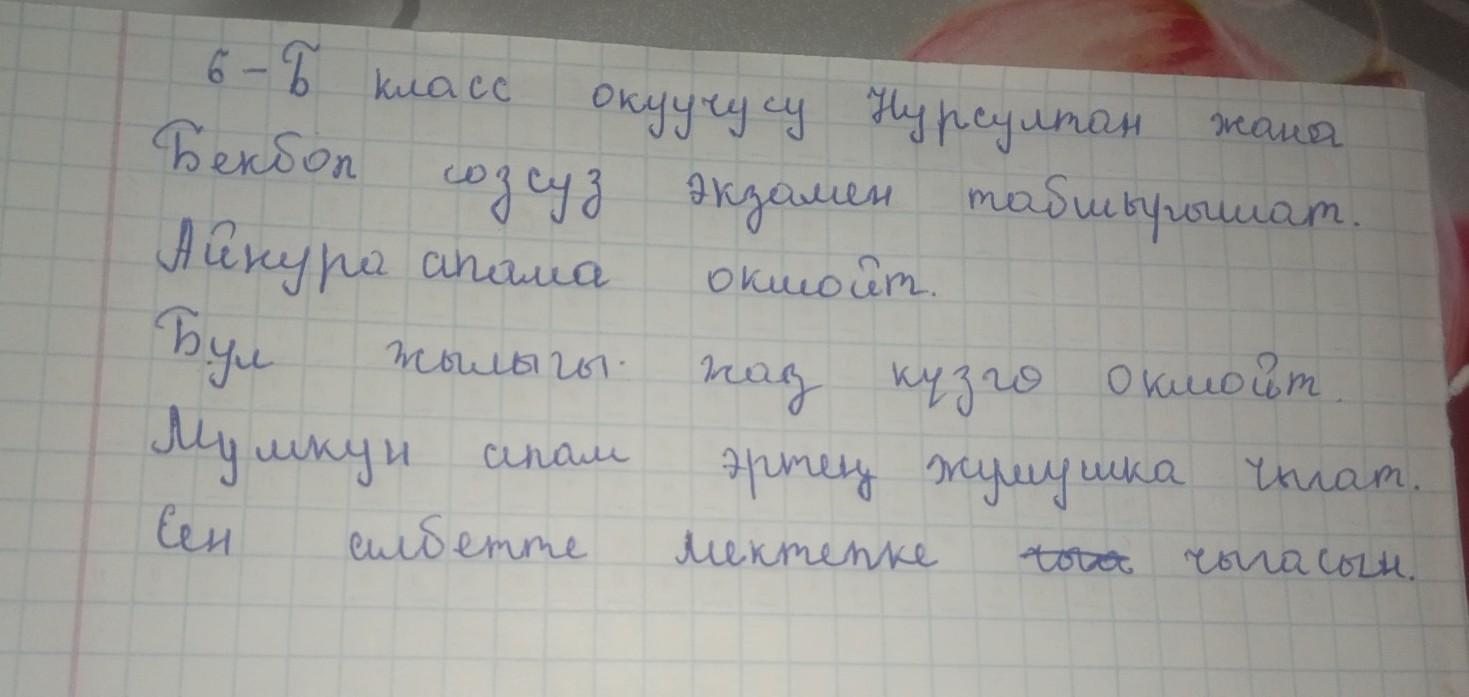 6-Б класс окуучусу Нурсултан жана
Бекбол созсуз экзамен табшырышат.
Айнура апама окшойт.
Бул жылыгы жаз кузго окшойт.
Мумкун апам эртең жумушка чыгат.
Сен албетте мектепке чыгасын.